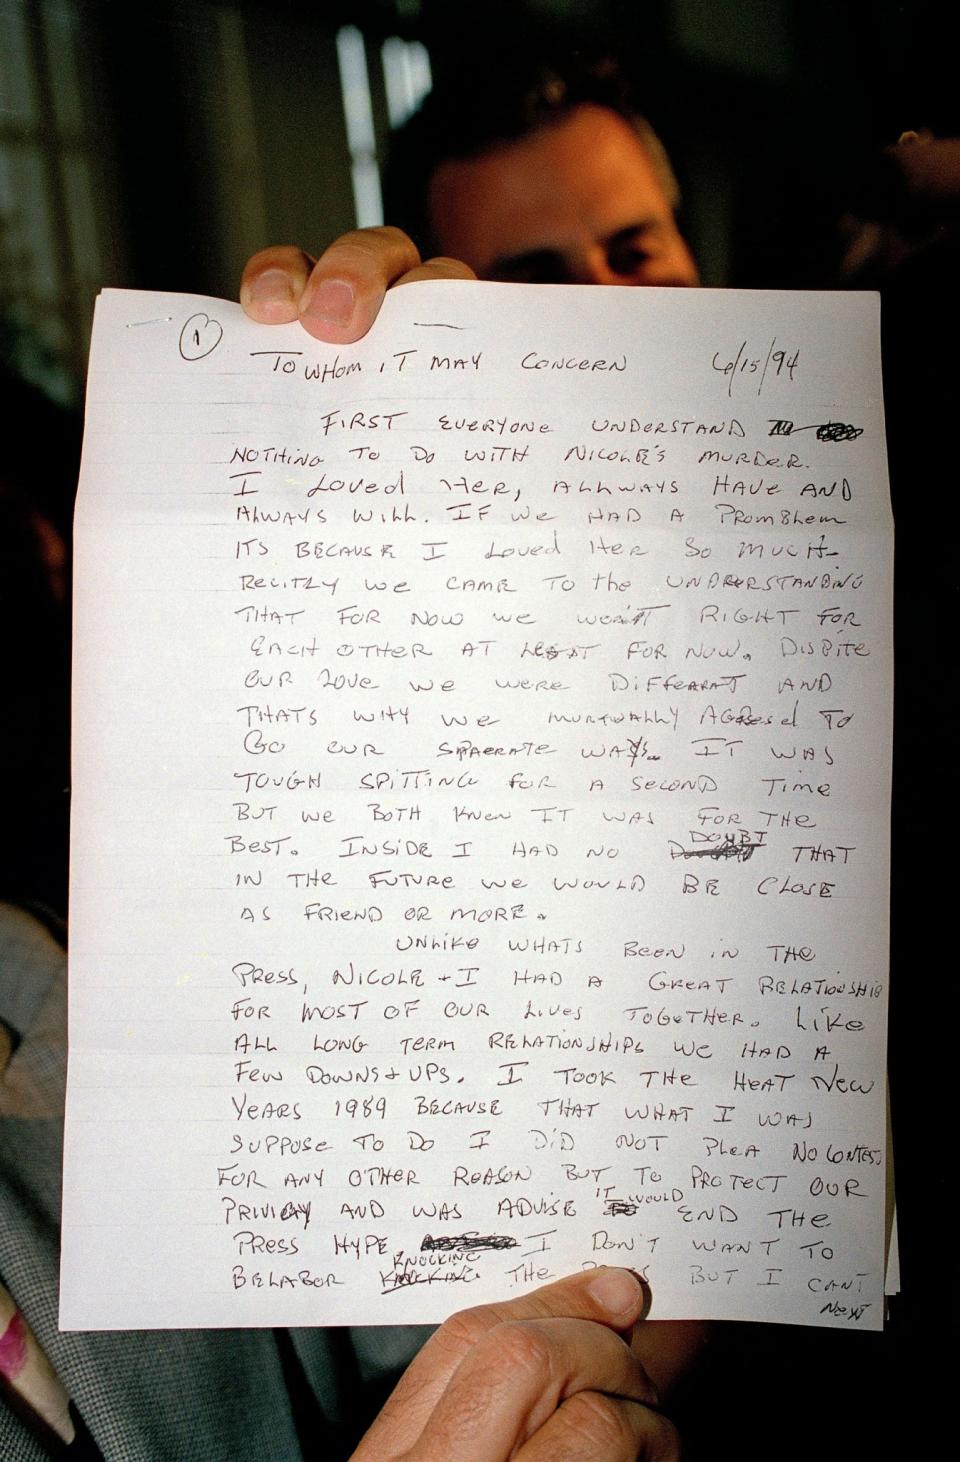 1
TO WHOM IT MAY CONCERN 6/15/94
FIRST EVERYONE UNDERSTAND
NOTHING TO DO WITH NICOLE'S MURDER.
I LOVED HER, ALLWAYS HAVE AND
ALWAYS WILL. IF WE HAD A PROMBLEM
ITS BECAUSE I LOVED HER SO MUCH
RECITLY WE CAME TO the UNDERSTANDING
THAT FOR NOW WE WERN'T RIGHT FOR
EACH OTHER AT LEAST FOR NOW. DISPITE
OUR LOVE WE WERE DIFFERANT AND
THATS WHY WE MURTUALLY AGREED TO
GO OUR SPAERATE WAYS. IT WAS
TOUGH SPITTING FOR A SECOND TIME
BUT WE BOTH KNEW IT WAS FOR THE
BEST. INSIDE I HAD NO DOUBT THAT
IN THE FUTURE WE WOULD BE CLOSE
AS FRIEND OR MORE.
UNLIKE WHATS BEEN IN THE
PRESS, NICOLE + I HAD A GREAT RELATIONSHIP
FOR MOST OF OUR LIVES TOGETHER. LIKE
ALL LONG TERM RELATIONSHIPS WE HAD A
FEW DOWNS + UPS. I TOOK THE HEAT NEW
YEARS 1989 BECAUSE THAT WHAT I WAS
SUPPOSE TO DO I DID NOT PLEA NO CONTEST
FOR ANY OTHER REASON BUT TO PROTECT OUR
PRIVICAY AND WAS ADVISE IT WOULD END THE
PRESS HYPE I DON'T WANT TO
BELABOR KNOCKING THE PRESS BUT I CANT
NEXT